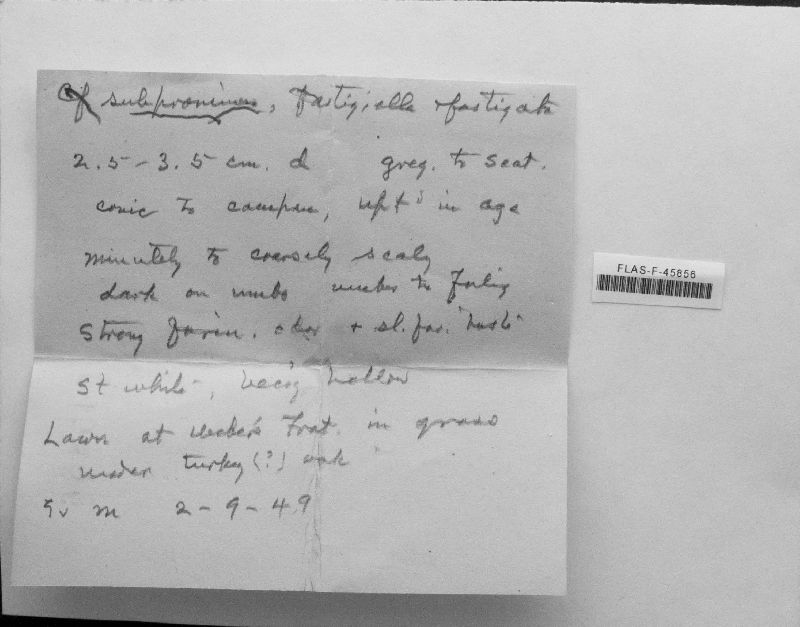 Cf subproximans, fastigiella + fastigata
2.5-3.5 cm. d greg. to scat.
conic to campan, in age
minutely to coarsely scaly
dark on umbo umber to
Strong farin. odor + sl. far. taste
St white, hollow
Lawn at Frat. in grass
under turkey (?) oak
2-9-49
FLAS-F-45856